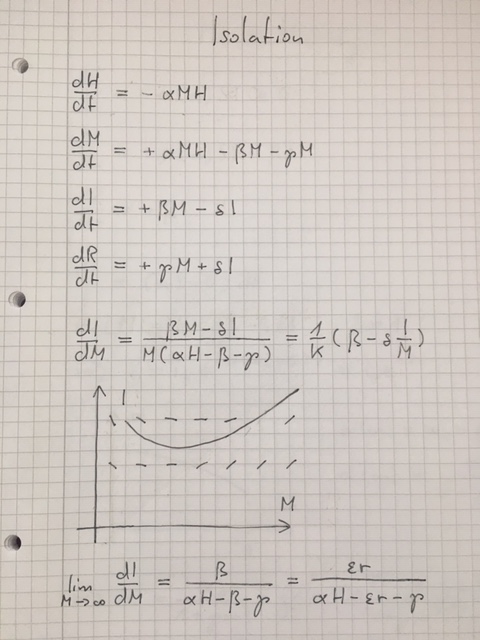 Isolation
dH/dt = - αMH
dM/dt = + αMH - βM - γM
dI/dt = + βM - δI
dR/dt = + γM + δI
dI/dM = βM - δI / M(αH - β - γ) = 1/K (β - δ I/M)
I
M
lim M→∞ dI/dM = β / αH - β - γ = εr / αH - εr - γ